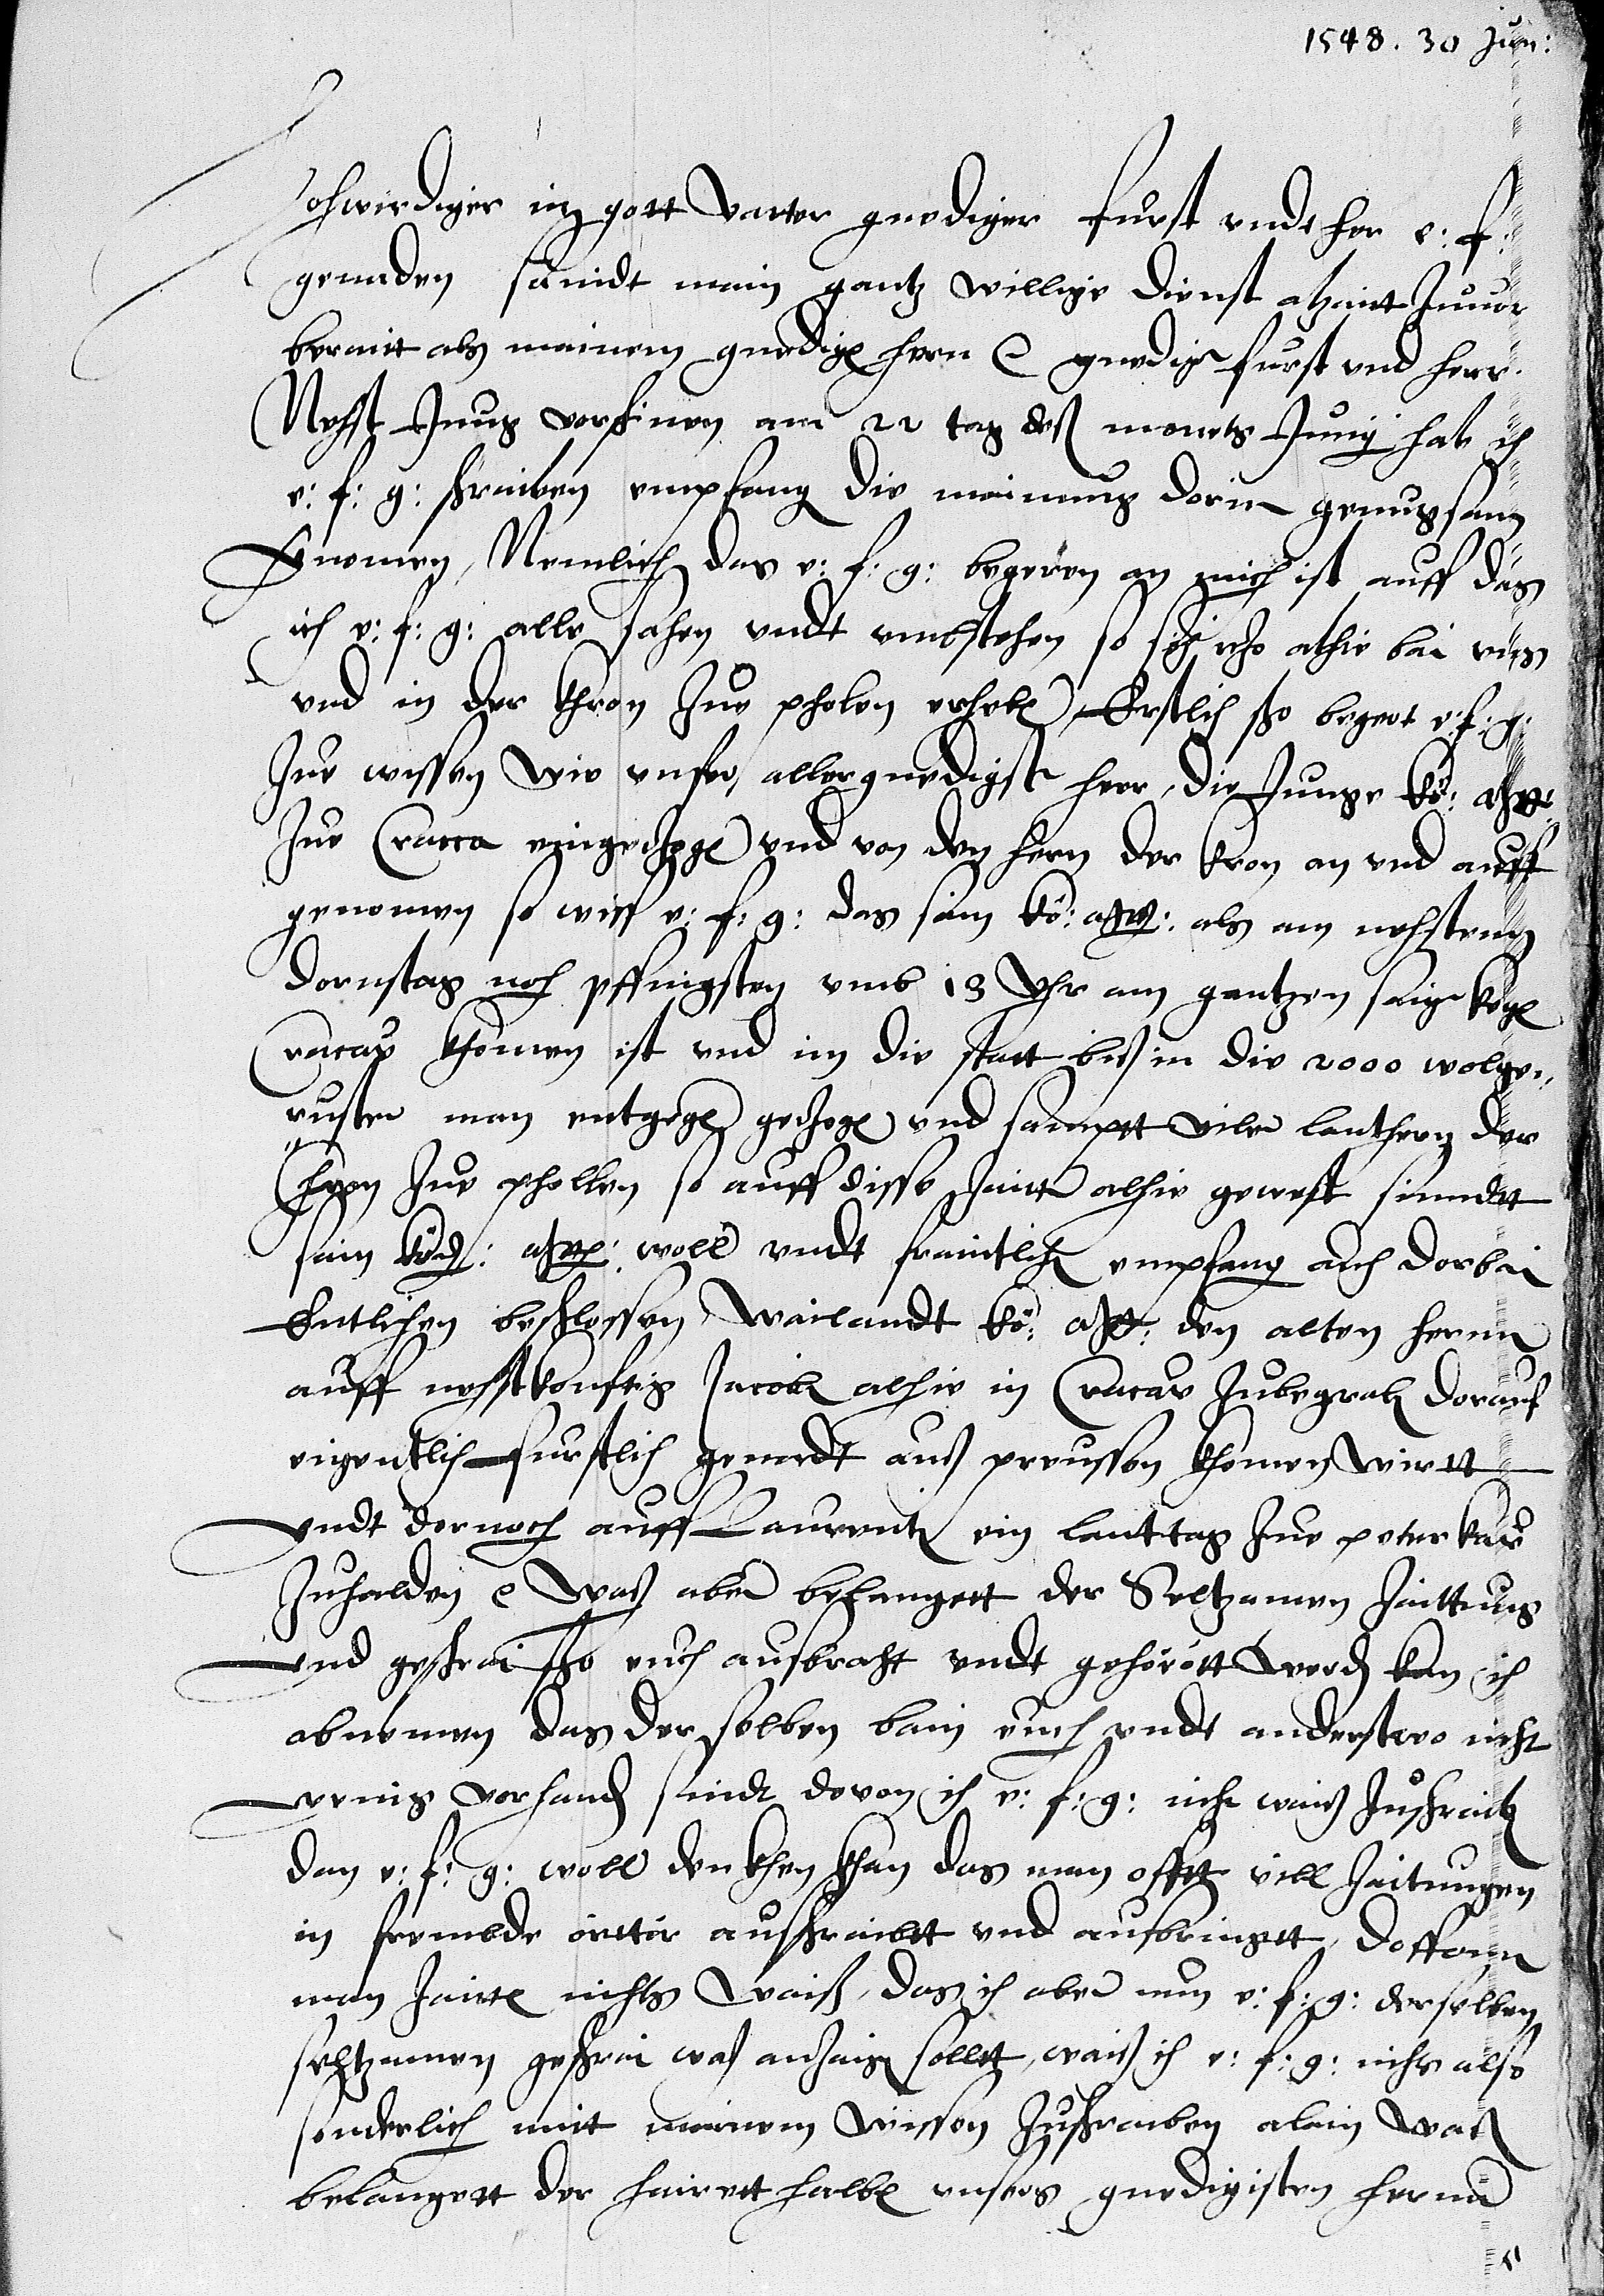 1548. 30 Jun:
Hochwirdiger in gott Vatter gnediger furst undt her e: f:
genaden sӱindt mein gantz willige dienst alzeit zuuor
bereitt als meinem gnedigen hern e gnediger furst und herr.
Nehst Jungs vorschinen am 22 tag des monets Junij hab ich
e: f: g: schreiben empfang die meinung dorin genugsam
fernomen, Nemlich das e: f: g: begeren an mich ist auff das
ich e: f: g: alle sachen undt umbstehen so sich itzo alhie bei uns
und in der Chron zue pholen erheben, Erstlich szo begert e: f: g:
zue wissen wie unser allergnedigster herr, die Junge kö: Mtt:
zue Cracca eingeczogen und von den hern der kron an und auff
genomen so wiss e: f: g: das sein kö: Mtt: als am nehstenn
dornstag noch pffingsten umb 13 Uhr am gantzen seiger kegen
Cracaw khomen ist und im die statt biss in die 2000 wolge„
ruster man entgegen geczogen und sampt viler lanthern der
Chron zue phollen so auff disse zeitt alhie gewest sinndt
sein kön: Mtt: woll undt freintlich empfang auch dorbei
Entlichen beschlossen, weilandt kö: Mtt: den alten hernn
auff nehstkonftig Jacobi alhie in Cracaw zubegraben dorauf
eigentlich furstlich genadt aus preussen khomen wirtt
undt dernoch auff Laurentj ein lanttag zue peterkaw
zuhalden e Was aber belanget der Seltzamen zeittung
und geschrei szo euch ausbracht undt gehörött werden kan ich
abnemen das derselben bein euch undt anderstwo nicht
wenig vorhanden sindt dovon ich e: f: g: nicht weis zuschreiben
dan e: f: g: woll denkhen khan das man offtt vill zeitungen
in frembde örtter ausschreibtt und ausbringett, doffonn
man zeitten nichts weis, das ich aber nun e: f: g: derselben
seltzamen geschrei was anzeigen solltt, weis ich e: f: g: nichts also
sonderlich mit meinem wissen zuschreiben alein was
belangett der heirett halben unsers gnedigisten hernn